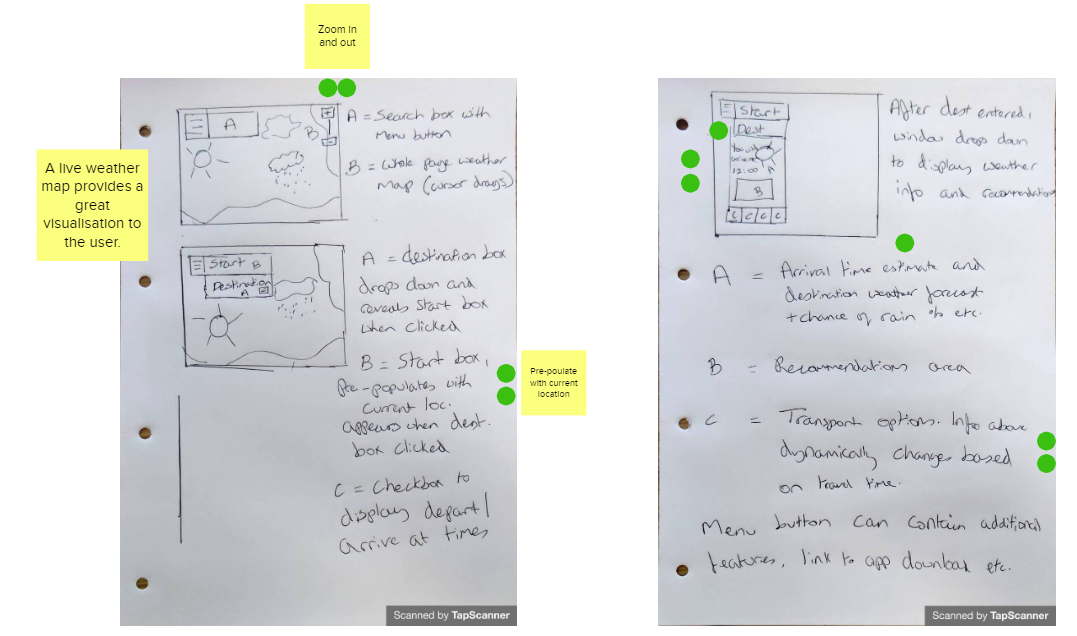 Zoom in
and out
A live weather
map provides a
great
visualisation to
the user.
A
B
A = Search box with
Menu button
B = whole page weather
Map (cursor drags)
Start B
Destination
A
A = destination box
drops down and
reveals start box
when clicked
B = Start box,
Pre-populates with
current loc.
appears when dest.
box clicked
C = Checkbox to
display depart/
arrive at times
Pre-poulate
with current
location
Scanned by TapScanner
Start
Dest
You will
arrive
12:00 A
B
C C C C
After dest entered,
window drops down
to display weather
info and recommendations
A = Arrival time estimate and
destination weather forecast
+ chance of rain % etc.
B = Recommendations area
C = Transport options. Info above
dynamically changes based
on travel time.
Menu button can contain additional
features, link to app download etc.
Scanned by TapScanner